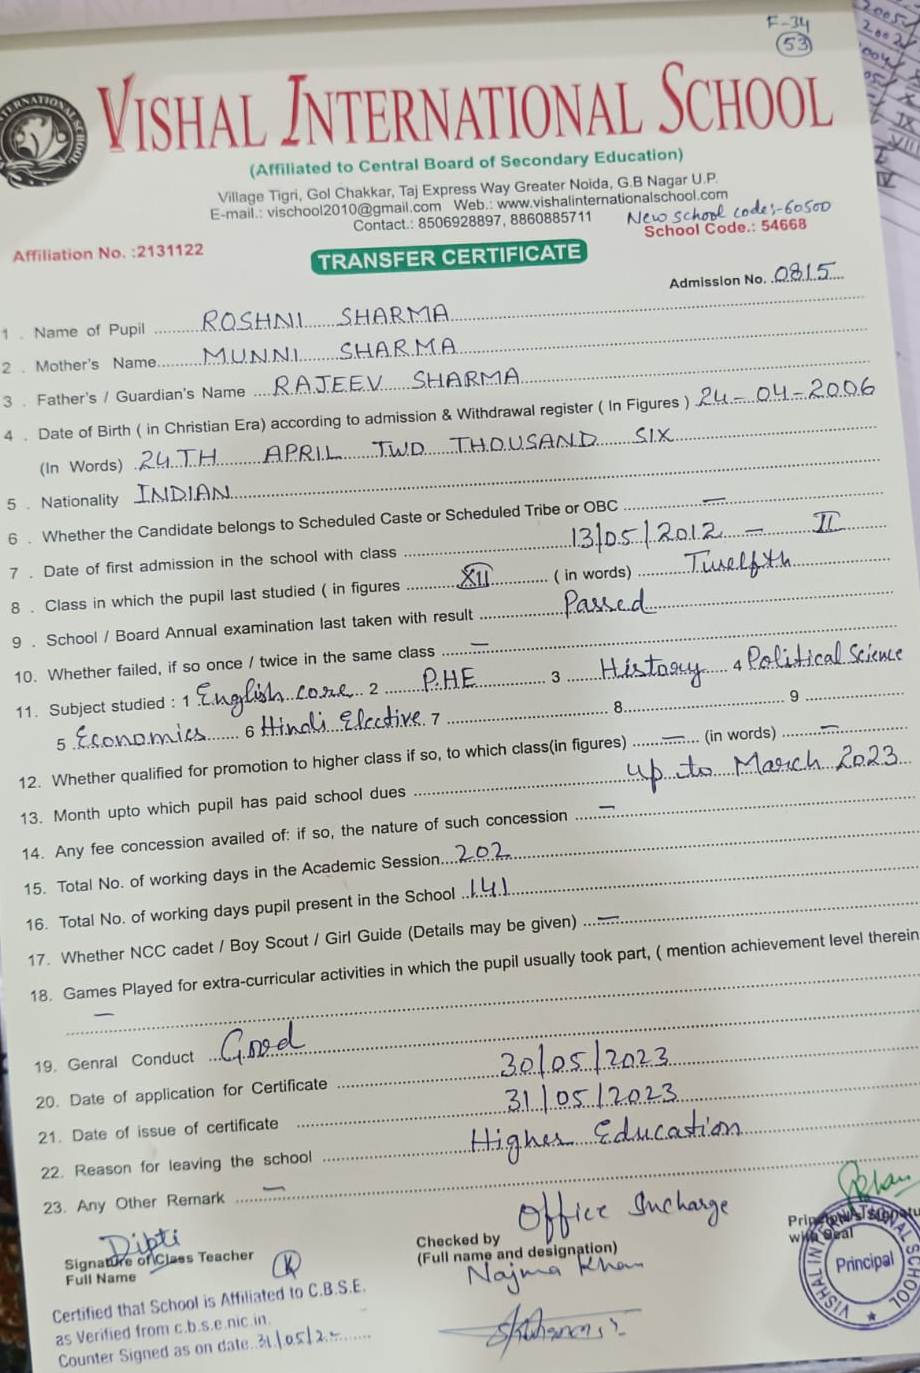 F-34
53
VISHAL INTERNATIONAL SCHOOL
(Affiliated to Central Board of Secondary Education)
Village Tigri, Gol Chakkar, Taj Express Way Greater Noida, G.B Nagar U.P.
E-mail.: vischool2010@gmail.com Web.: www.vishalinternationalschool.com
Contact.: 8506928897, 8860885711
New school code:-60500
Affiliation No. :2131122 School Code.: 54668
TRANSFER CERTIFICATE
Admission No. 0815
1 . Name of Pupil ROSHNI SHARMA
2 . Mother's Name MUNNI SHARMA
3 . Father's / Guardian's Name RAJEEV SHARMA
4 . Date of Birth ( in Christian Era) according to admission & Withdrawal register ( In Figures ) 24-04-2006
(In Words) 24TH APRIL TWO THOUSAND SIX
5 . Nationality INDIAN
6 . Whether the Candidate belongs to Scheduled Caste or Scheduled Tribe or OBC —
7 . Date of first admission in the school with class 13/05/2012 — II
8 . Class in which the pupil last studied ( in figures XII ( in words) Twelfth
9 . School / Board Annual examination last taken with result Passed
10. Whether failed, if so once / twice in the same class —
11. Subject studied : 1 English core 2 P.HE 3 History 4 Political Science
5 Economics 6 Hindi Elective 7 8 9
12. Whether qualified for promotion to higher class if so, to which class(in figures) — (in words) —
13. Month upto which pupil has paid school dues up to March 2023
14. Any fee concession availed of: if so, the nature of such concession —
15. Total No. of working days in the Academic Session 202
16. Total No. of working days pupil present in the School 141
17. Whether NCC cadet / Boy Scout / Girl Guide (Details may be given) —
18. Games Played for extra-curricular activities in which the pupil usually took part, ( mention achievement level therein
—
19. Genral Conduct Good
20. Date of application for Certificate 30/05/2023
21. Date of issue of certificate 31/05/2023
22. Reason for leaving the school Higher Education
23. Any Other Remark —
Dipti
Signature of Class Teacher
Full Name
Office Incharge
Checked by
(Full name and designation)
Najma Khan
with Seal
VISHAL INTERNATIONAL SCHOOL
Principal
Certified that School is Affiliated to C.B.S.E.
as Verified from c.b.s.e.nic.in.
Counter Signed as on date 31/05/2